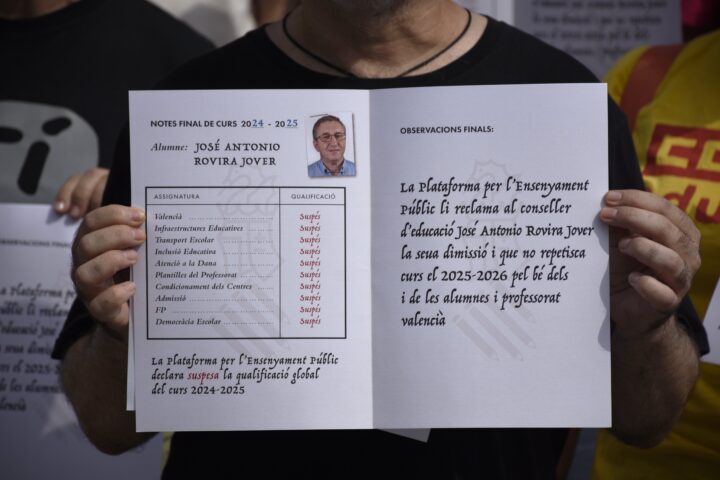 NOTES FINAL DE CURS 2024 - 2025
Alumne: JOSÉ ANTONIO
ROVIRA JOVER
ASSIGNATURA QUALIFICACIÓ
Valencià Suspés
Infraestructures Educatives Suspés
Transport Escolar Suspés
Inclusió Educativa Suspés
Atenció a la Dana Suspés
Plantilles del Professorat Suspés
Condicionament dels Centres Suspés
Admissió Suspés
FP Suspés
Democràcia Escolar Suspés
La Plataforma per l'Ensenyament Públic
declara suspesa la qualificació global
del curs 2024-2025
OBSERVACIONS FINALS:
La Plataforma per l'Ensenyament
Públic li reclama al conseller
d'educació José Antonio Rovira Jover
la seua dimissió i que no repetisca
curs el 2025-2026 pel bé dels
i de les alumnes i professorat
valencià